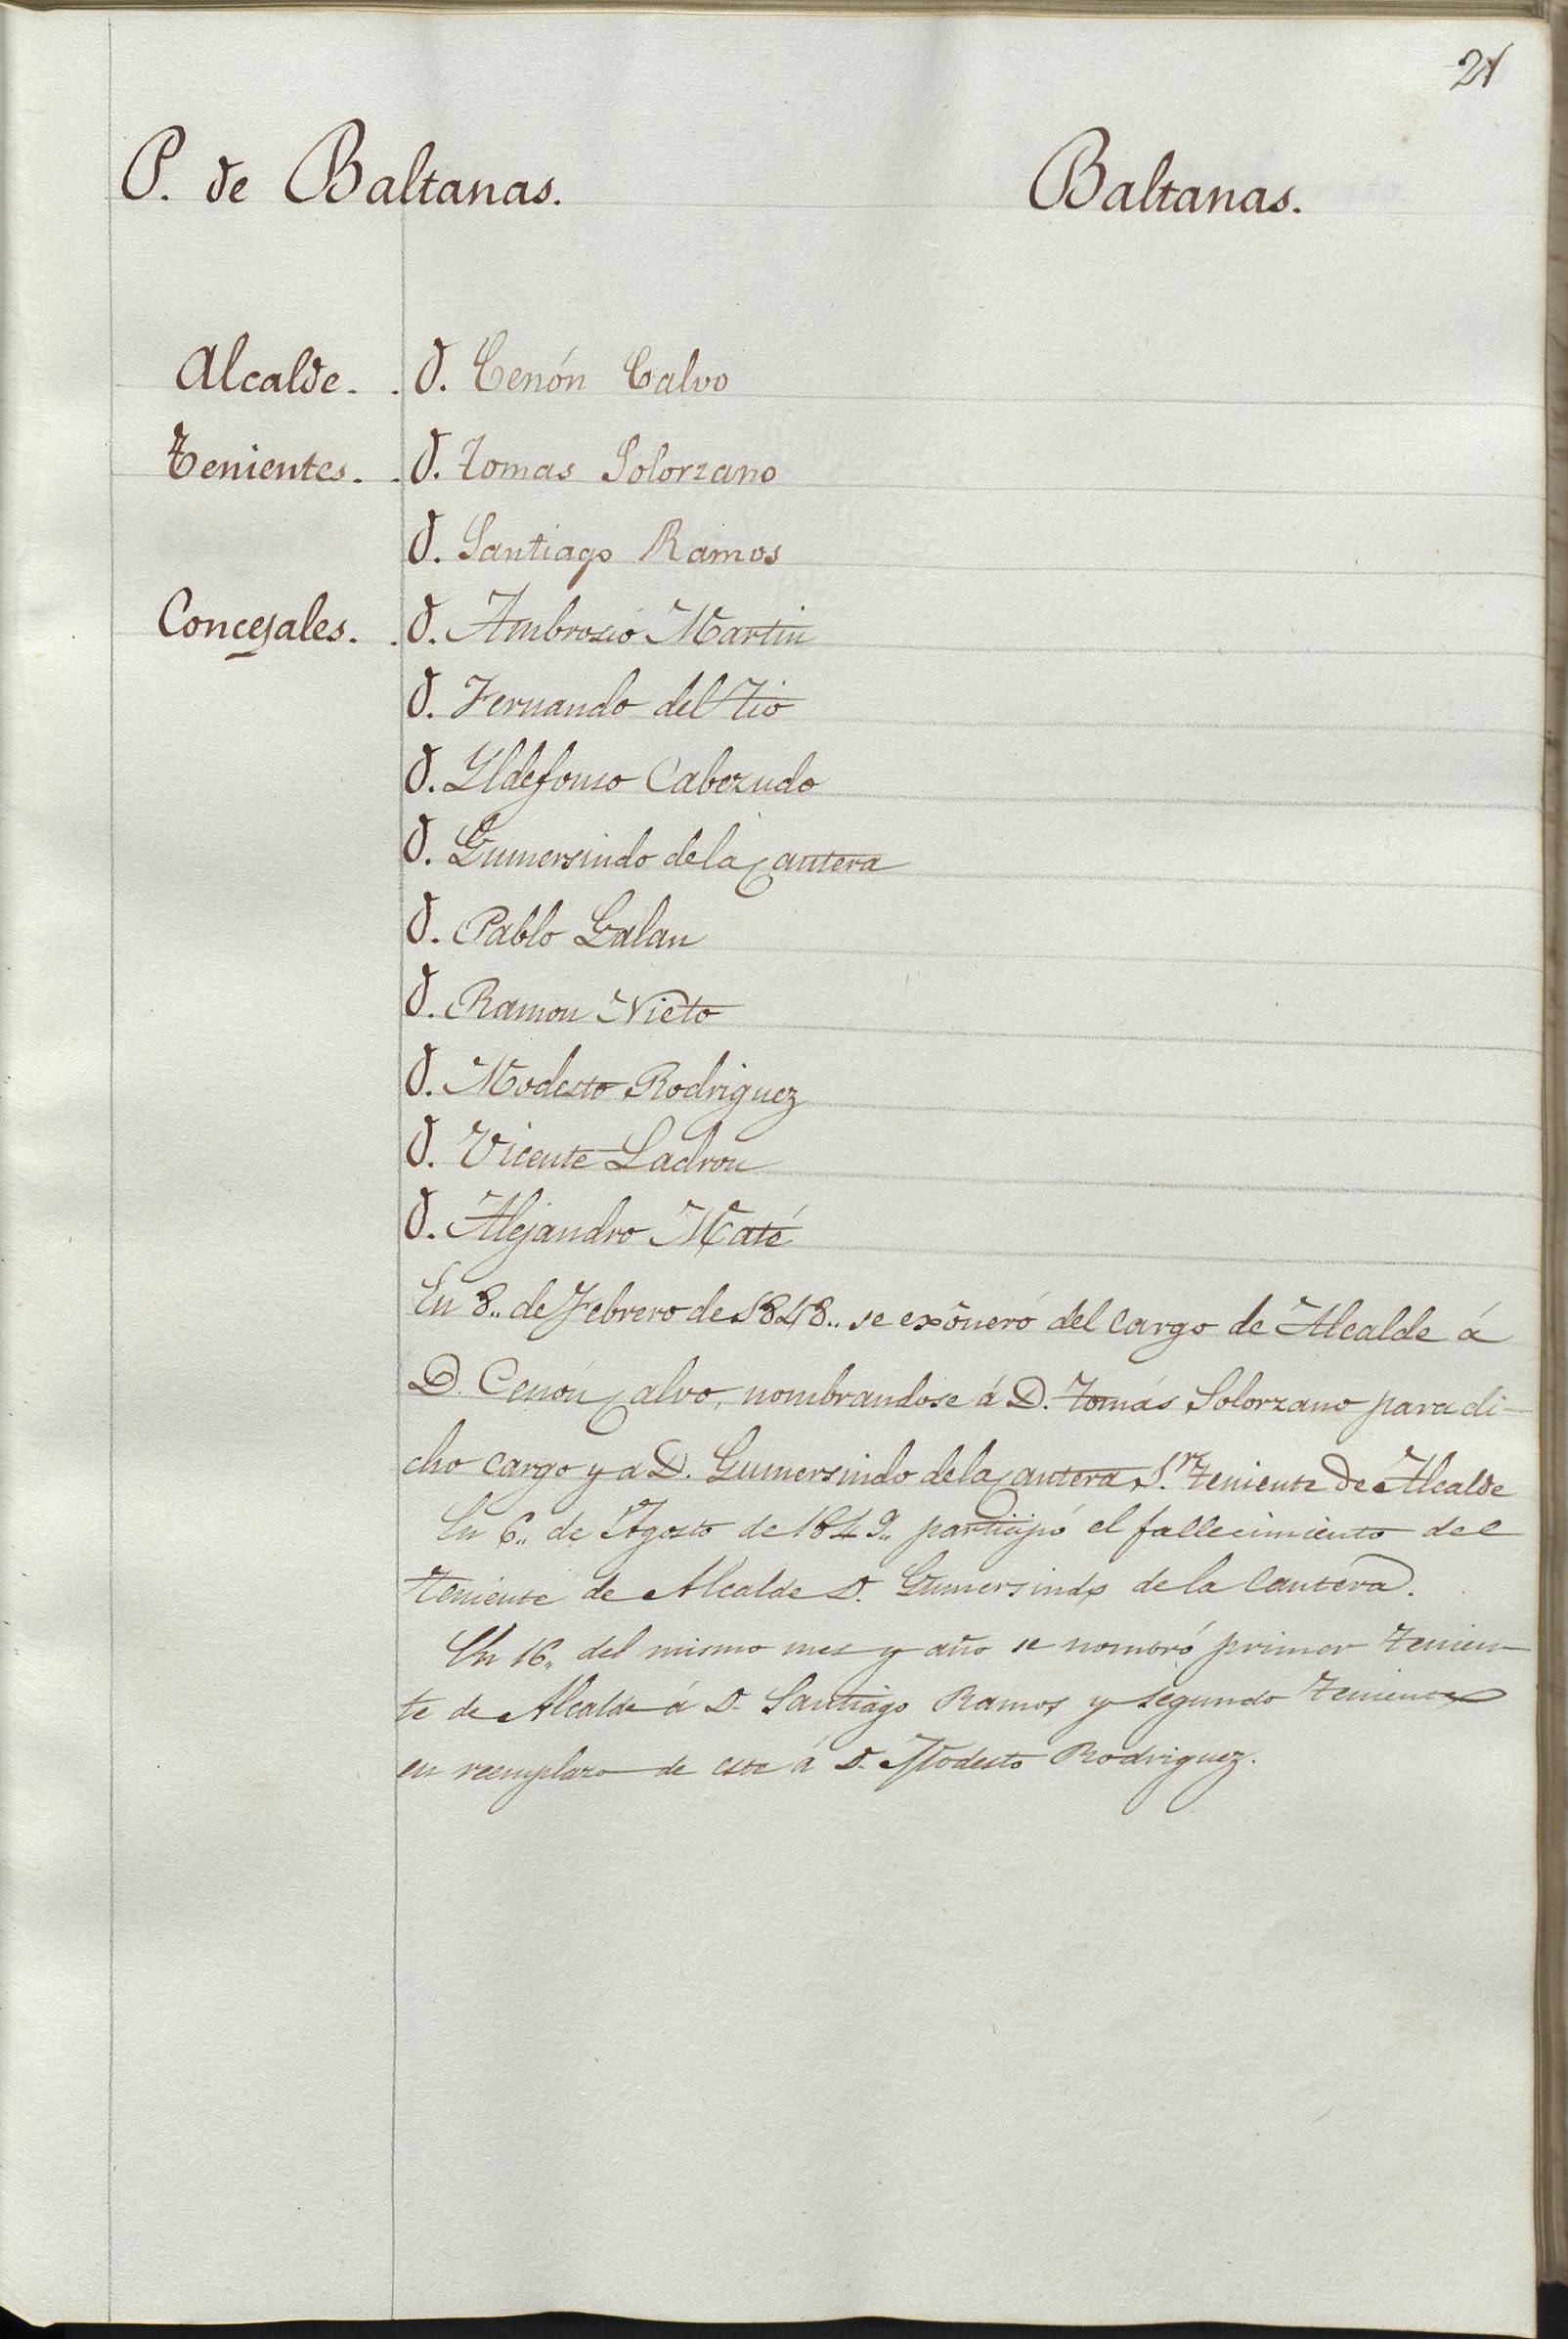 21
P. de Baltanas. Baltanas.
Alcalde. . D. Cenón Calvo
Tenientes. . D. Tomas Solorzano
D. Santiago Ramos
Concejales. . D. Ambrosio Martin
D. Fernando del Tio
D. Yldefonso Cabezudo
D. Gumersindo de la Cantera
D. Pablo Galan
D. Ramon Nieto
D. Modesto Rodriguez
D. Vicente Ladron
D. Alejandro Maté
En 8.. de Febrero de 1848.. se exôneró del cargo de Alcalde á
D. Cenón Calvo, nombrandose á D. Tomás Solorzano para di-
cho cargo y a D. Gumersindo de la Cantera 1.er Teniente de Alcalde
En 6.. de Agosto de 1849.. participó el fallecimiento del
Teniente de Alcalde D. Gumersindo de la Cantera.
En 16.. del mismo mes y año se nombró primer Tenien-
te de Alcalde á D. Santiago Ramos y segundo Teniente
en reemplazo de este á D. Modesto Rodriguez.